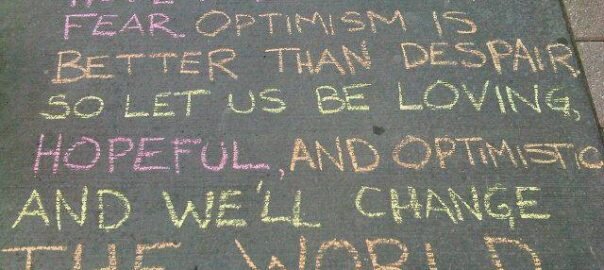 FEAR. OPTIMISM IS
BETTER THAN DESPAIR.
SO LET US BE LOVING,
HOPEFUL, AND OPTIMISTIC
AND WE'LL CHANGE
THE WORLD